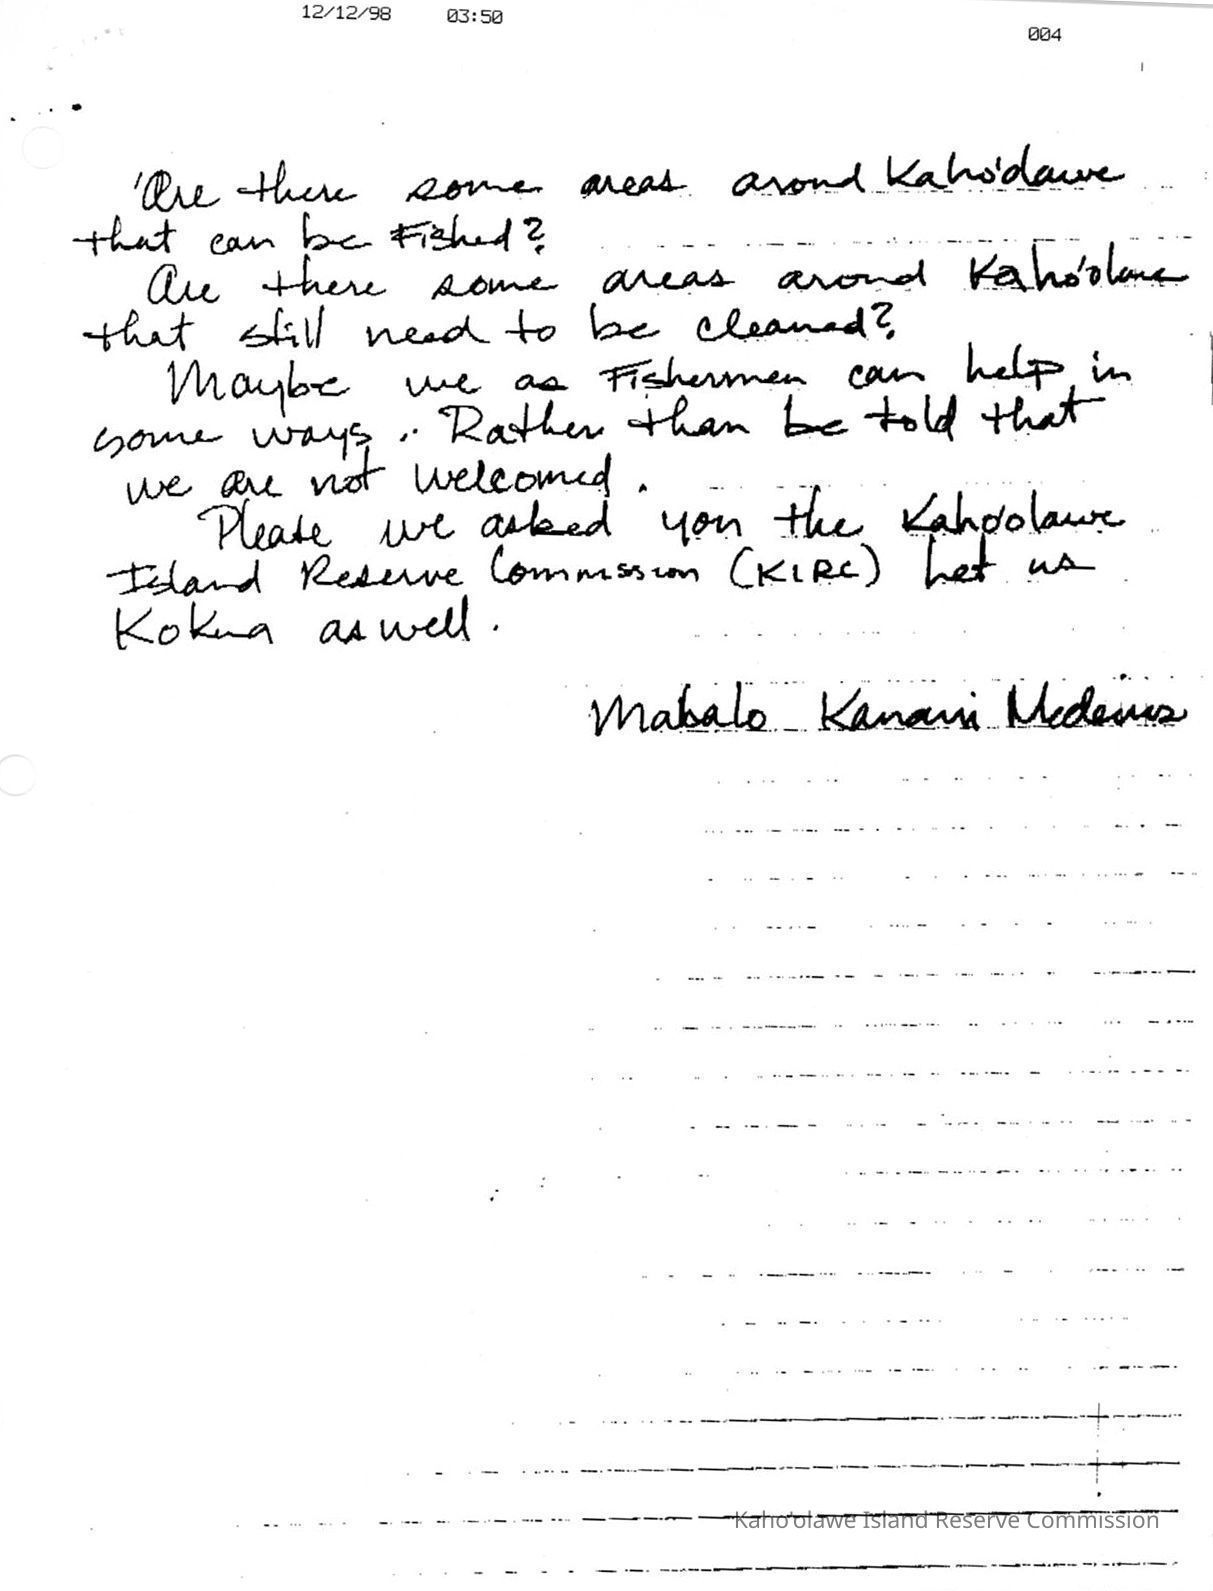 12/12/98 03:50
004
Are there some areas arond Kaho'olawe
that can be Fished?
Are there some areas arond Kaho'olawe
that still need to be cleaned?
Maybe we as Fishermen can help in
some ways. Rather than be told that
we are not welcomed.
Please we asked you the Kaho'olawe
Island Reserve Commission (KIRC) Let us
Kokua as well.
Mahalo Kanani Medeiros
Kaho'olawe Island Reserve Commission